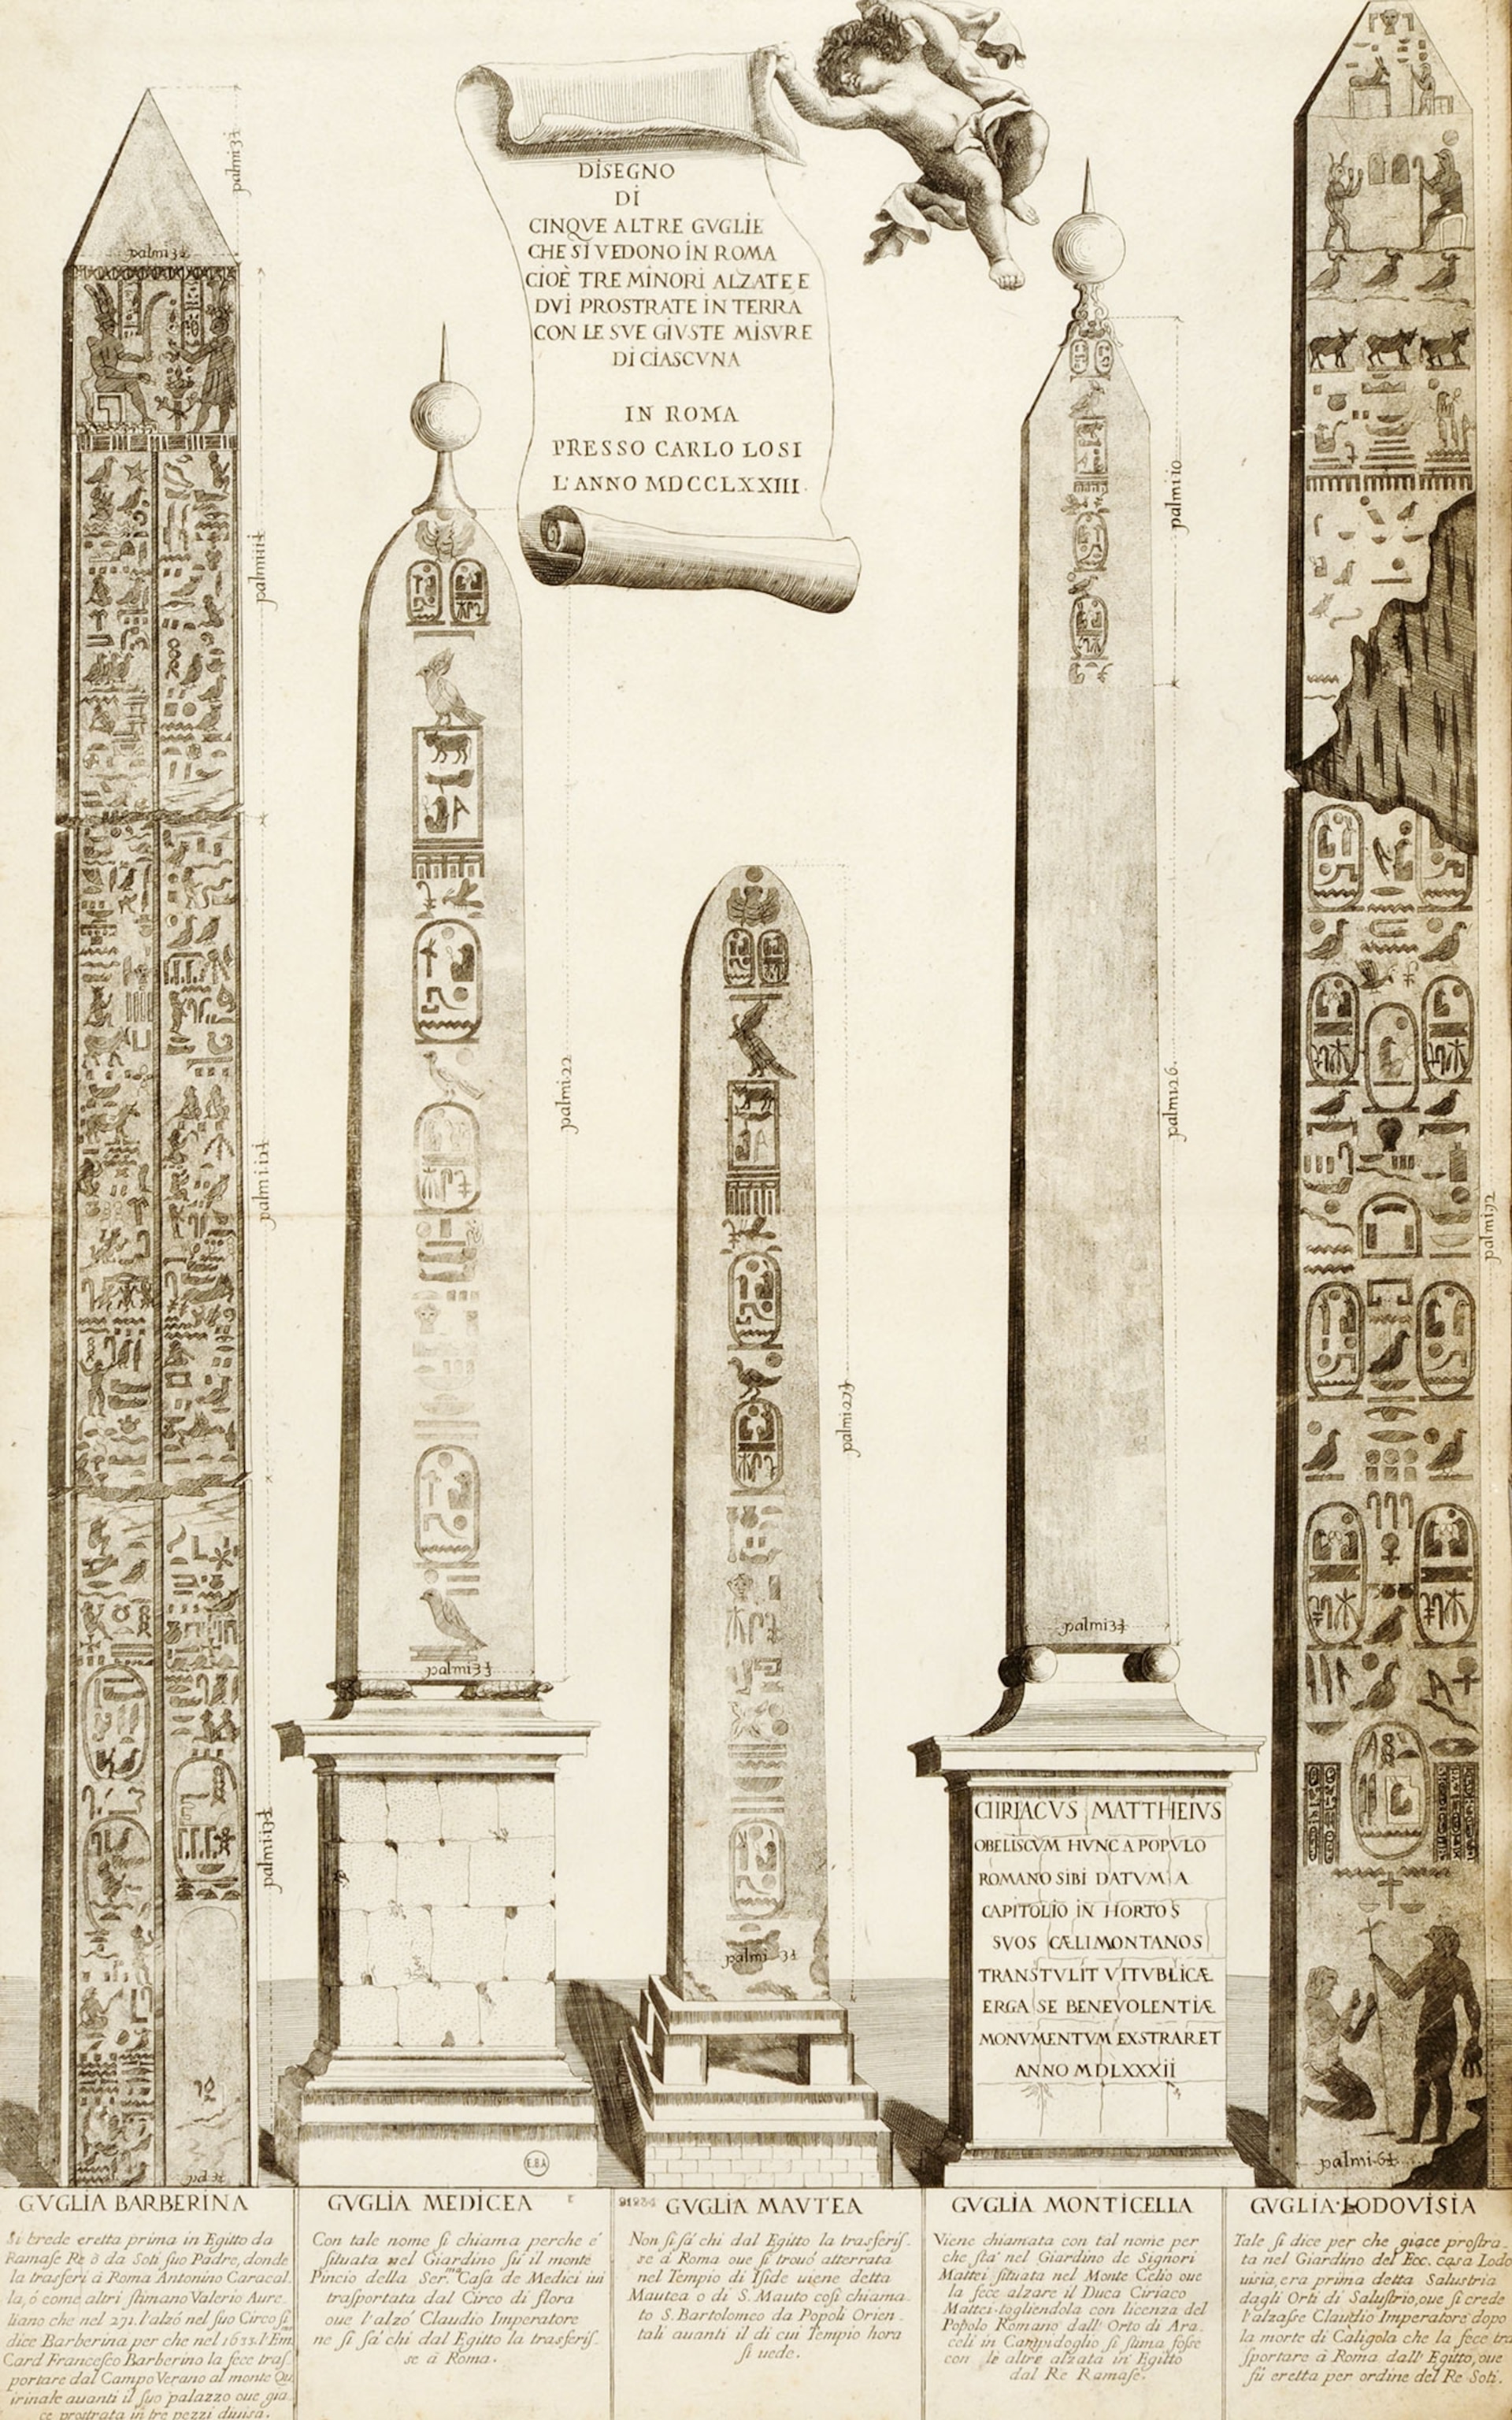 DISEGNO
DI
CINQVE ALTRE GVGLIE
CHE SI VEDONO IN ROMA
CIOÈ TRE MINORI ALZATE E
DVI PROSTRATE IN TERRA
CON LE SVE GIVSTE MISVRE
DI CIASCVNA
IN ROMA
PRESSO CARLO LOSI
L'ANNO MDCCLXXIII.
palmi 3½
palmi 3½
palmi 22
palmi 3½
palmi 3½
palmi 10
palmi 26.
palmi 3½
palmi 6½
CIIRIACVS MATTHEIVS
OBELISCVM HVNC A POPVLO
ROMANO SIBI DATVM A
CAPITOLIO IN HORTOS
SVOS CÆLIMONTANOS
TRANSTVLIT VITVBLICÆ
ERGA SE BENEVOLENTIÆ
MONVMENTVM EXSTRARET
ANNO MDLXXXII
E.B.A
GVGLIA BARBERINA
Si crede eretta prima in Egitto da
Ramase Re ó da Soti suo Padre, donde
la trasferi á Roma Antonino Caracal.
la, ó come altri stimano Valerio Aure.
liano che nel 271. l'alzó nel suo Circo si
dice Barberina per che nel 1633. l'Em
Card Francesco Barberino la fece tras.
portare dal Campo Verano al monte Qu
irinale auanti il suo palazzo oue gia
ce prostrata in tre pezzi diuisa.
GVGLIA MEDICEA
Con tale nome si chiama perche é
situata nel Giardino su il monte
Pincio della Ser.ma Casa de Medici iui
trasportata dal Circo di flora
oue l'alzó Claudio Imperatore
ne si sá chi dal Egitto la trasferis.
se á Roma.
GVGLIA MAVTEA
Non si sá chi dal Egitto la trasferis.
se á Roma oue si trouó atterrata
nel Tempio di Iside uiene detta
Mautea o di S. Mauto cosi chiama.
to S. Bartolomeo da Popoli Orien.
tali auanti il di cui Tempio hora
si uede.
GVGLIA MONTICELLA
Viene chiamata con tal nome per
che sta nel Giardino de Signori
Mattei situata nel Monte Celio oue
la fece alzare il Duca Ciriaco
Mattei togliendola con licenza del
Popolo Romano dall' Orto di Ara.
celi in Campidoglio si stima fosse
con le altre alzata in Egitto
dal Re Ramase.
GVGLIA LODOVISIA
Tale si dice per che giace prostra.
ta nel Giardino del Ecc. casa Lodo
uisia, era prima detta Salustria
dagli Orti di Salustrio, oue si crede
l'alzasse Claudio Imperatore dopo
la morte di Caligola che la fece tra
sportare á Roma dall' Egitto, oue
fú eretta per ordine del Re Soti.